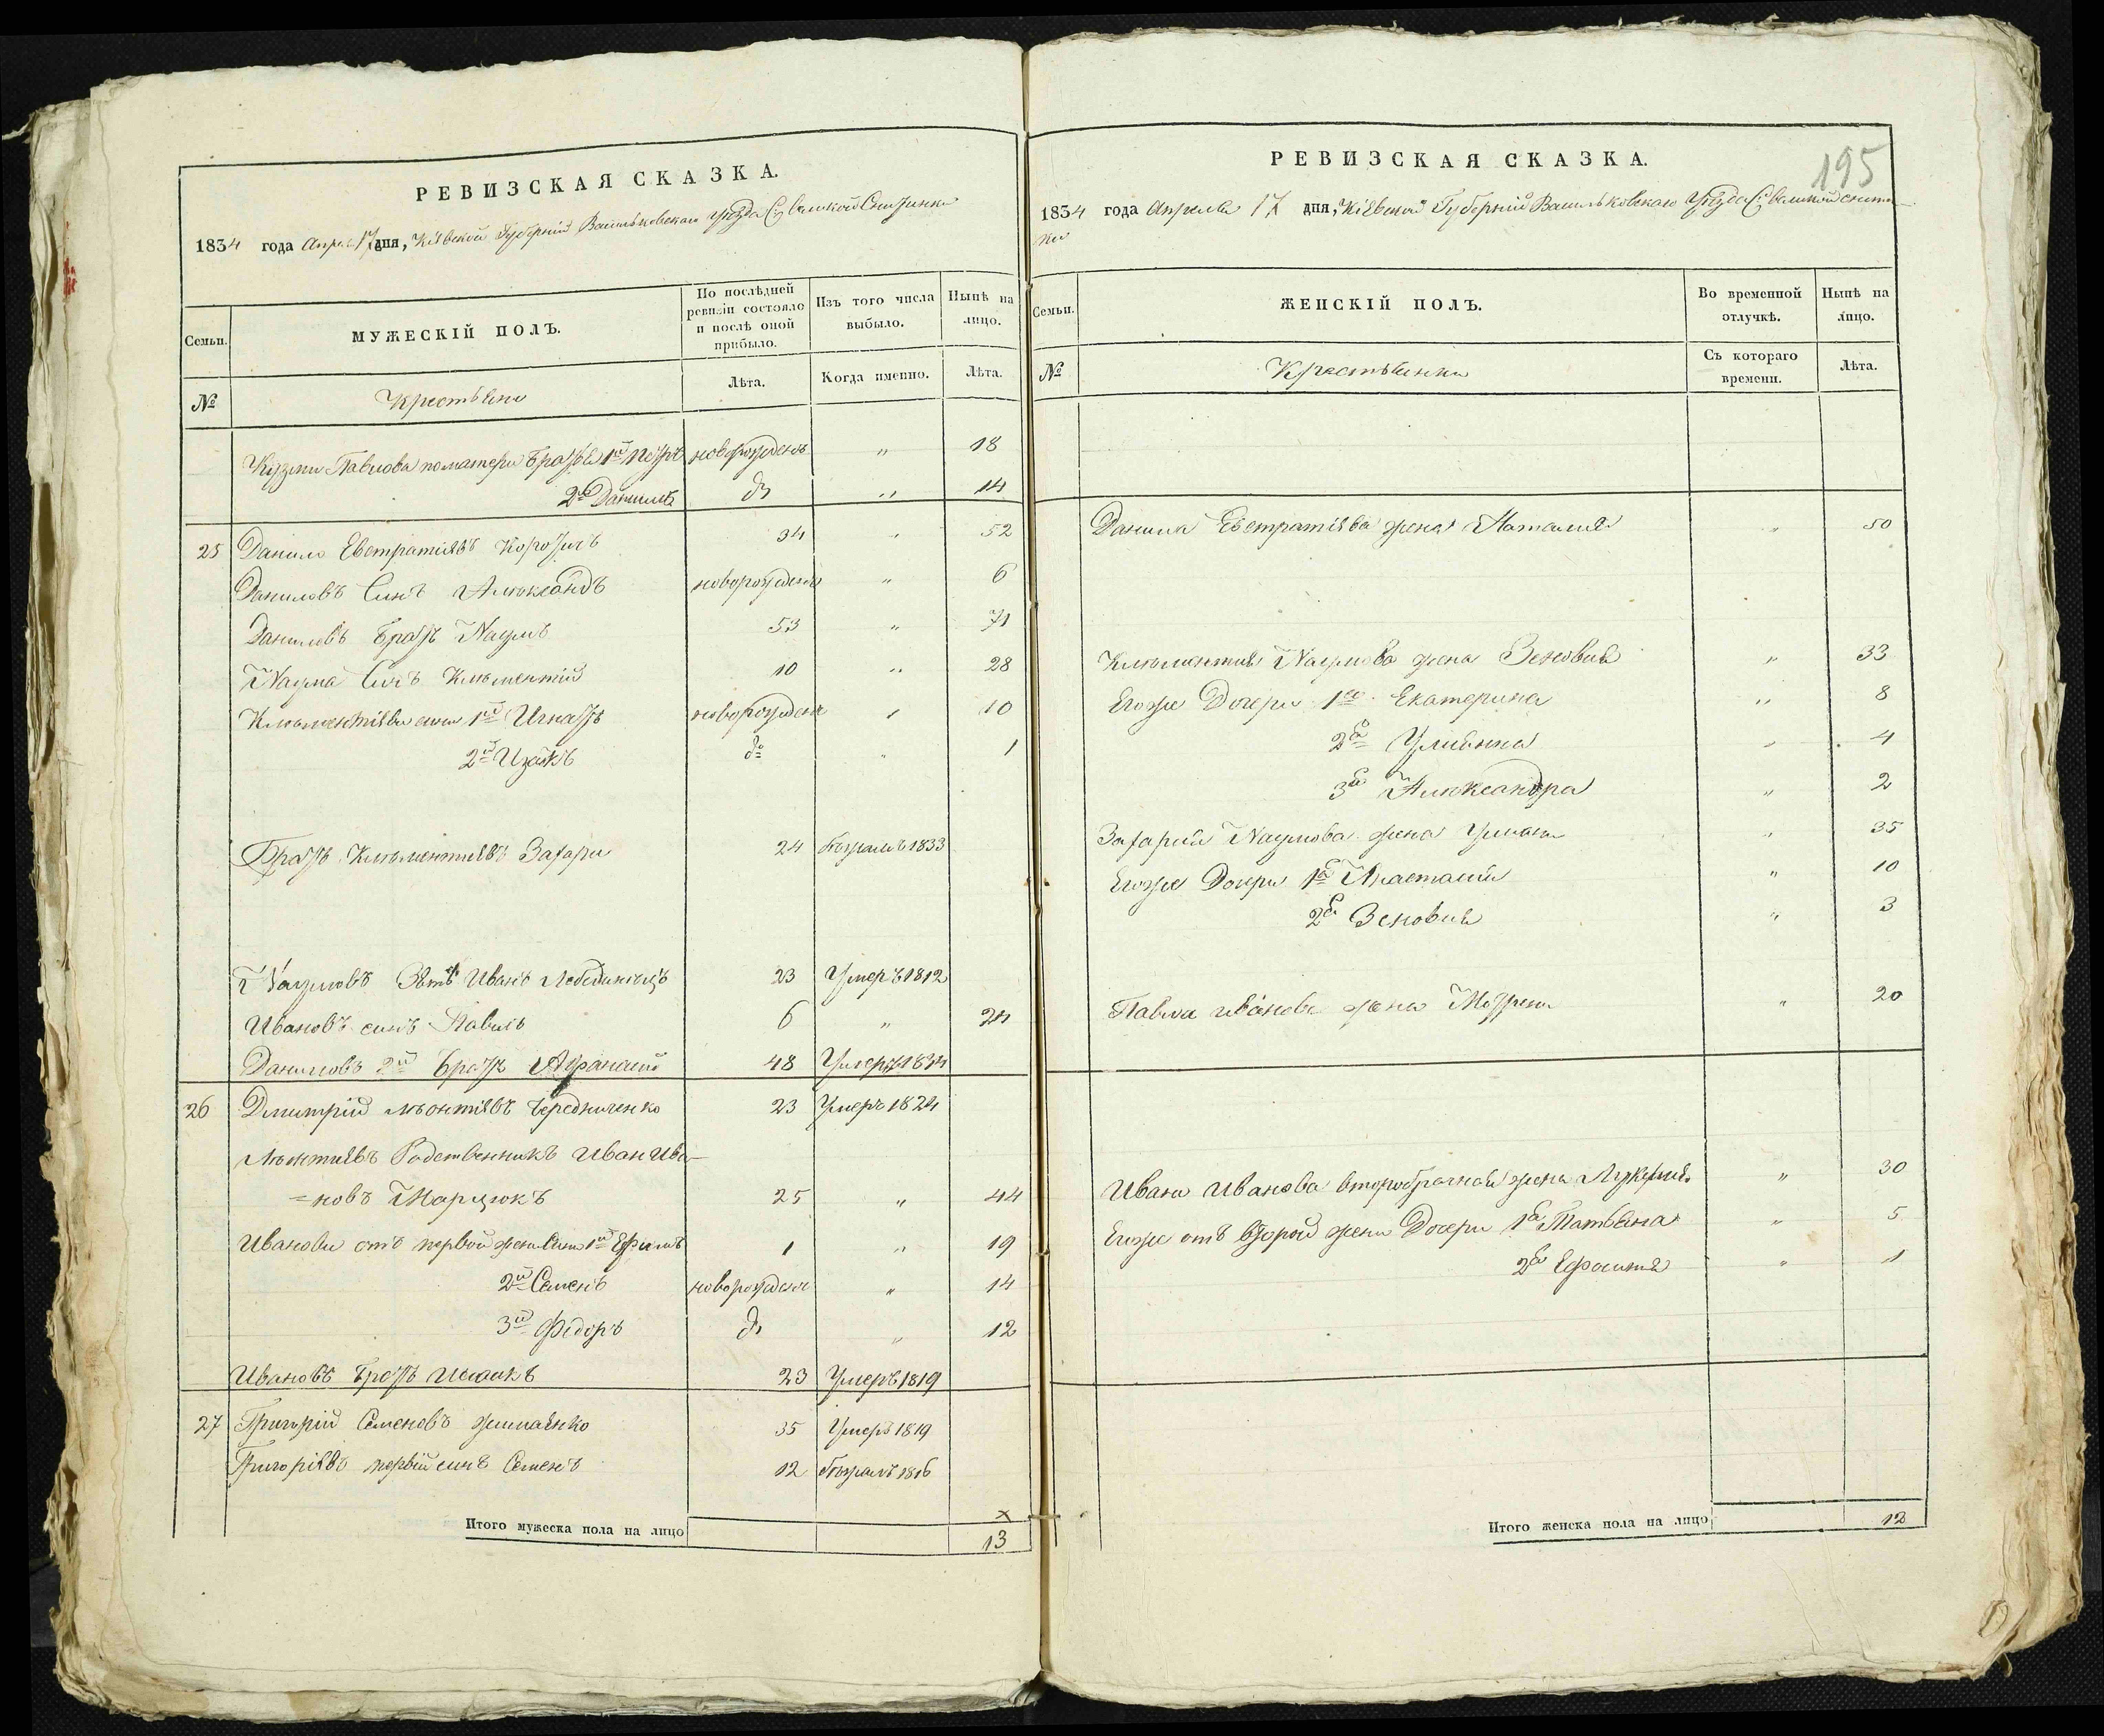 РЕВИЗСКАЯ СКАЗКА.
1834 года Апреля 17 дня, Кіевской Губерніи Васильковскаго уезда С: Великой Снитинки
Семьи.
МУЖЕСКІЙ ПОЛЪ.
По послѣдней ревизіи состояло и послѣ оной прибыло.
Изъ того числа выбыло.
Нынѣ на лицо.
№
Крестьяне
Лѣта.
Когда именно.
Лѣта.
Кузмы Павлова по матери братья 1й Петръ новорожденъ " 18
2й Данилъ до " 14
25 Данило Евстратіевъ 34 " 52
Даниловъ Синъ Александъ новорожденъ " 6
Даниловъ братъ Наумъ 53 " 71
Наума Синъ Клементій 10 " 28
Клементіеви сини 1й Игнатъ новорожденъ " 10
2й Изакъ до " 1
Братъ Клементіевъ Захари 24 1833
Наумовъ Зять Иванъ Лебединецъ 23 Умеръ 1812
Ивановъ синъ Павелъ 6 " 24
Даниловъ 2й братъ Афанасій 48 Умеръ 1834
26 Дмитрій Леонтіевъ Чередниченко 23 Умеръ 1824
Леонтіевъ Родственникъ Иван Ива-
=новъ Марцюкъ 25 " 44
Иванови отъ первой жени Сини 1й Ефимъ 1 " 19
2й Семенъ новорожден " 14
3й Федоръ до " 12
Ивановъ братъ Исаакъ 23 Умеръ 1819
27 Григорій Семеновъ 35 Умеръ 1819
Григоріевъ первій синъ Семенъ 12 1816
Итого мужеска пола на лицо
13
195
РЕВИЗСКАЯ СКАЗКА.
1834 года Апреля 17 дня, Кіевской Губерніи Васильковскаго Уезда С: Великой Снитин
ки
Семьи.
ЖЕНСКІЙ ПОЛЪ.
Во временной отлучкѣ.
Нынѣ на лицо.
№
Крестьянки
Съ котораго времени.
Лѣта.
Данила Евстратіева жена Наталия " 50
Клементия Наумова жена Зеновия " 33
Егоже Дочери 1я Екатерина " 8
2я Улианна " 4
3я Александра " 2
Захарии Наумова жена " 35
Егоже Дочери 1я Анастасия " 10
2я Зеновия " 3
Павла Иванова жена Мотрена " 20
Ивана Иванова второбрачная жена Лукерия " 30
Егоже отъ второй жени Дочери 1я Татьяна " 5
2я " 1
Итого женска пола на лицо
12